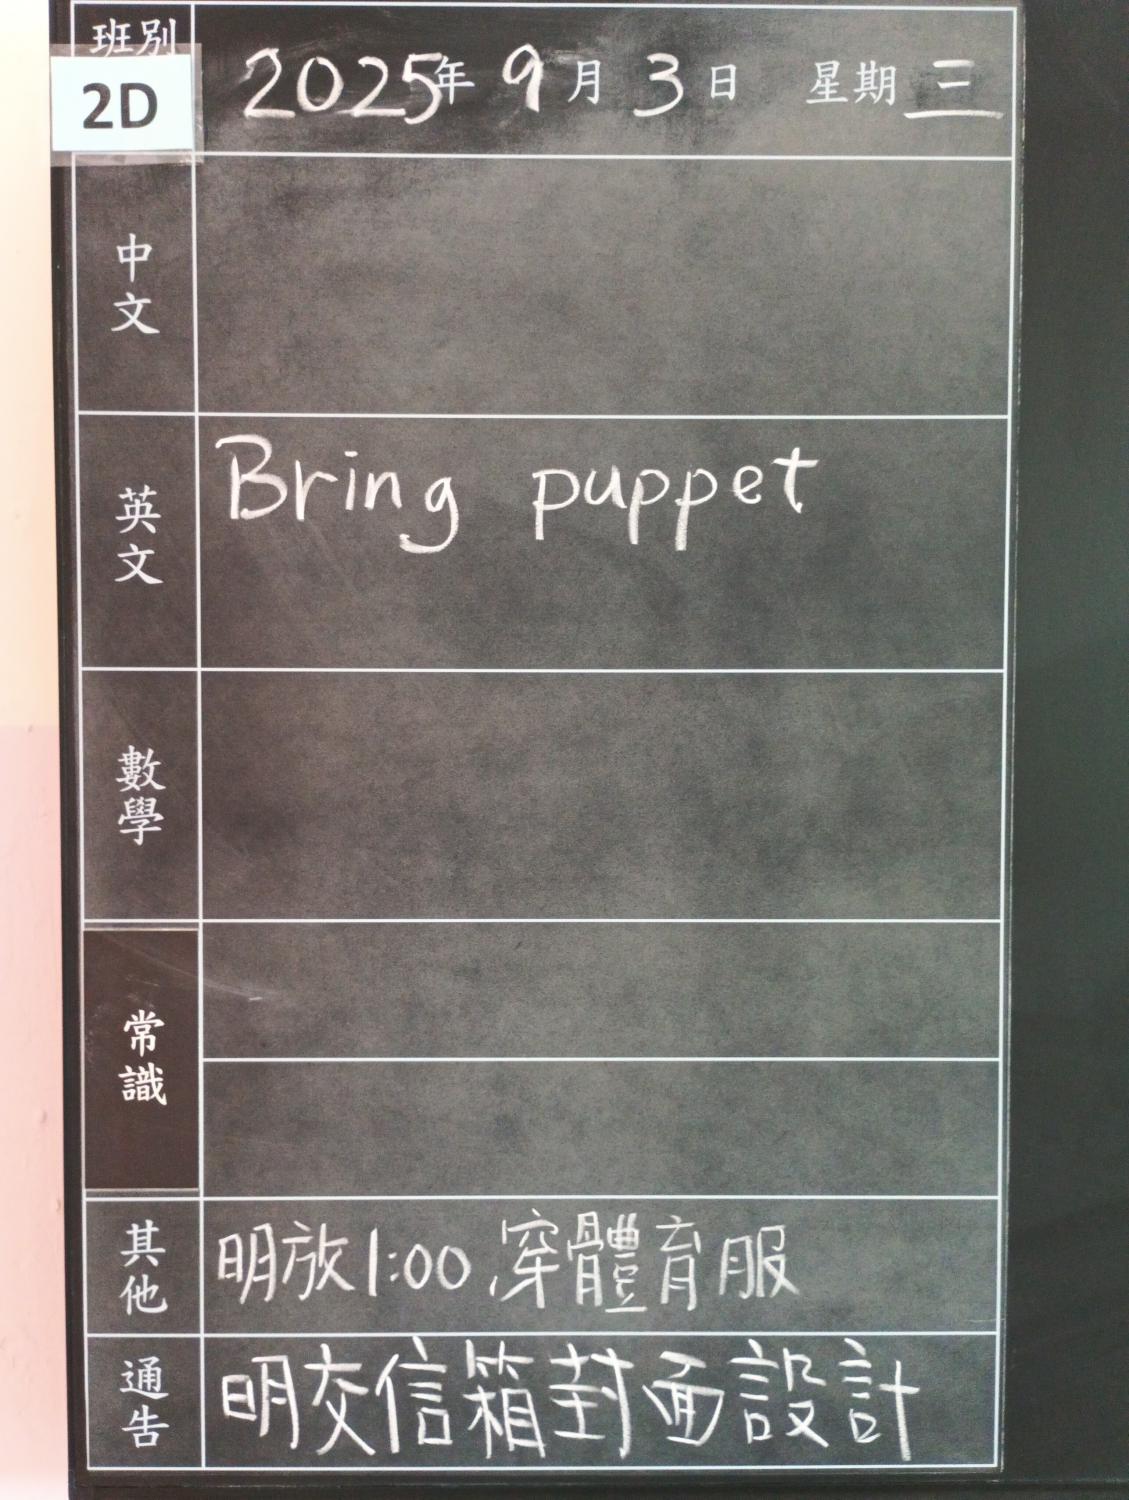 班別
2D
2025年 9月 3日 星期 三
中文
英文
Bring puppet
數學
常識
其他
明放1:00,穿體育服
通告
明交信箱封面設計